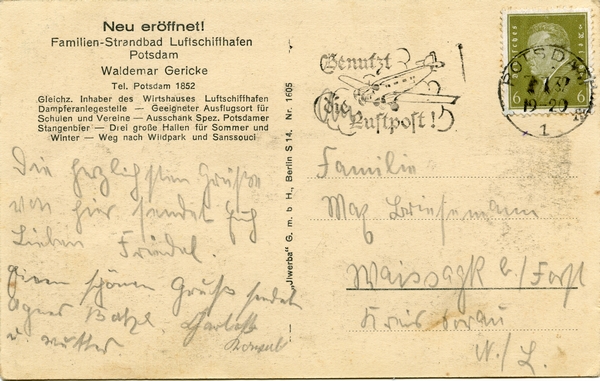 Neu eröffnet!
Familien-Strandbad Luftschiffhafen
Potsdam
Waldemar Gericke
Tel. Potsdam 1852
Gleichz. Inhaber des Wirtshauses Luftschiffhafen
Dampferanlegestelle — Geeigneter Ausflugsort für
Schulen und Vereine — Ausschank Spez. Potsdamer
Stangenbier — Drei große Hallen für Sommer und
Winter — Weg nach Wildpark und Sanssouci
Die herzlichsten Grüße
von hier sendet Euch
Lieben Friedel.
Einen schönen Gruß sendet
Agnes
u. Mutter
"Jiwerba" G. m. b H., Berlin S 14. Nr. 1605
Benutzt
die
Luftpost!
POTSDAM
19-20
1
6 6
Familie
Max Briesemann
Waissagk b/Forst
Kreis Sorau
N/L.